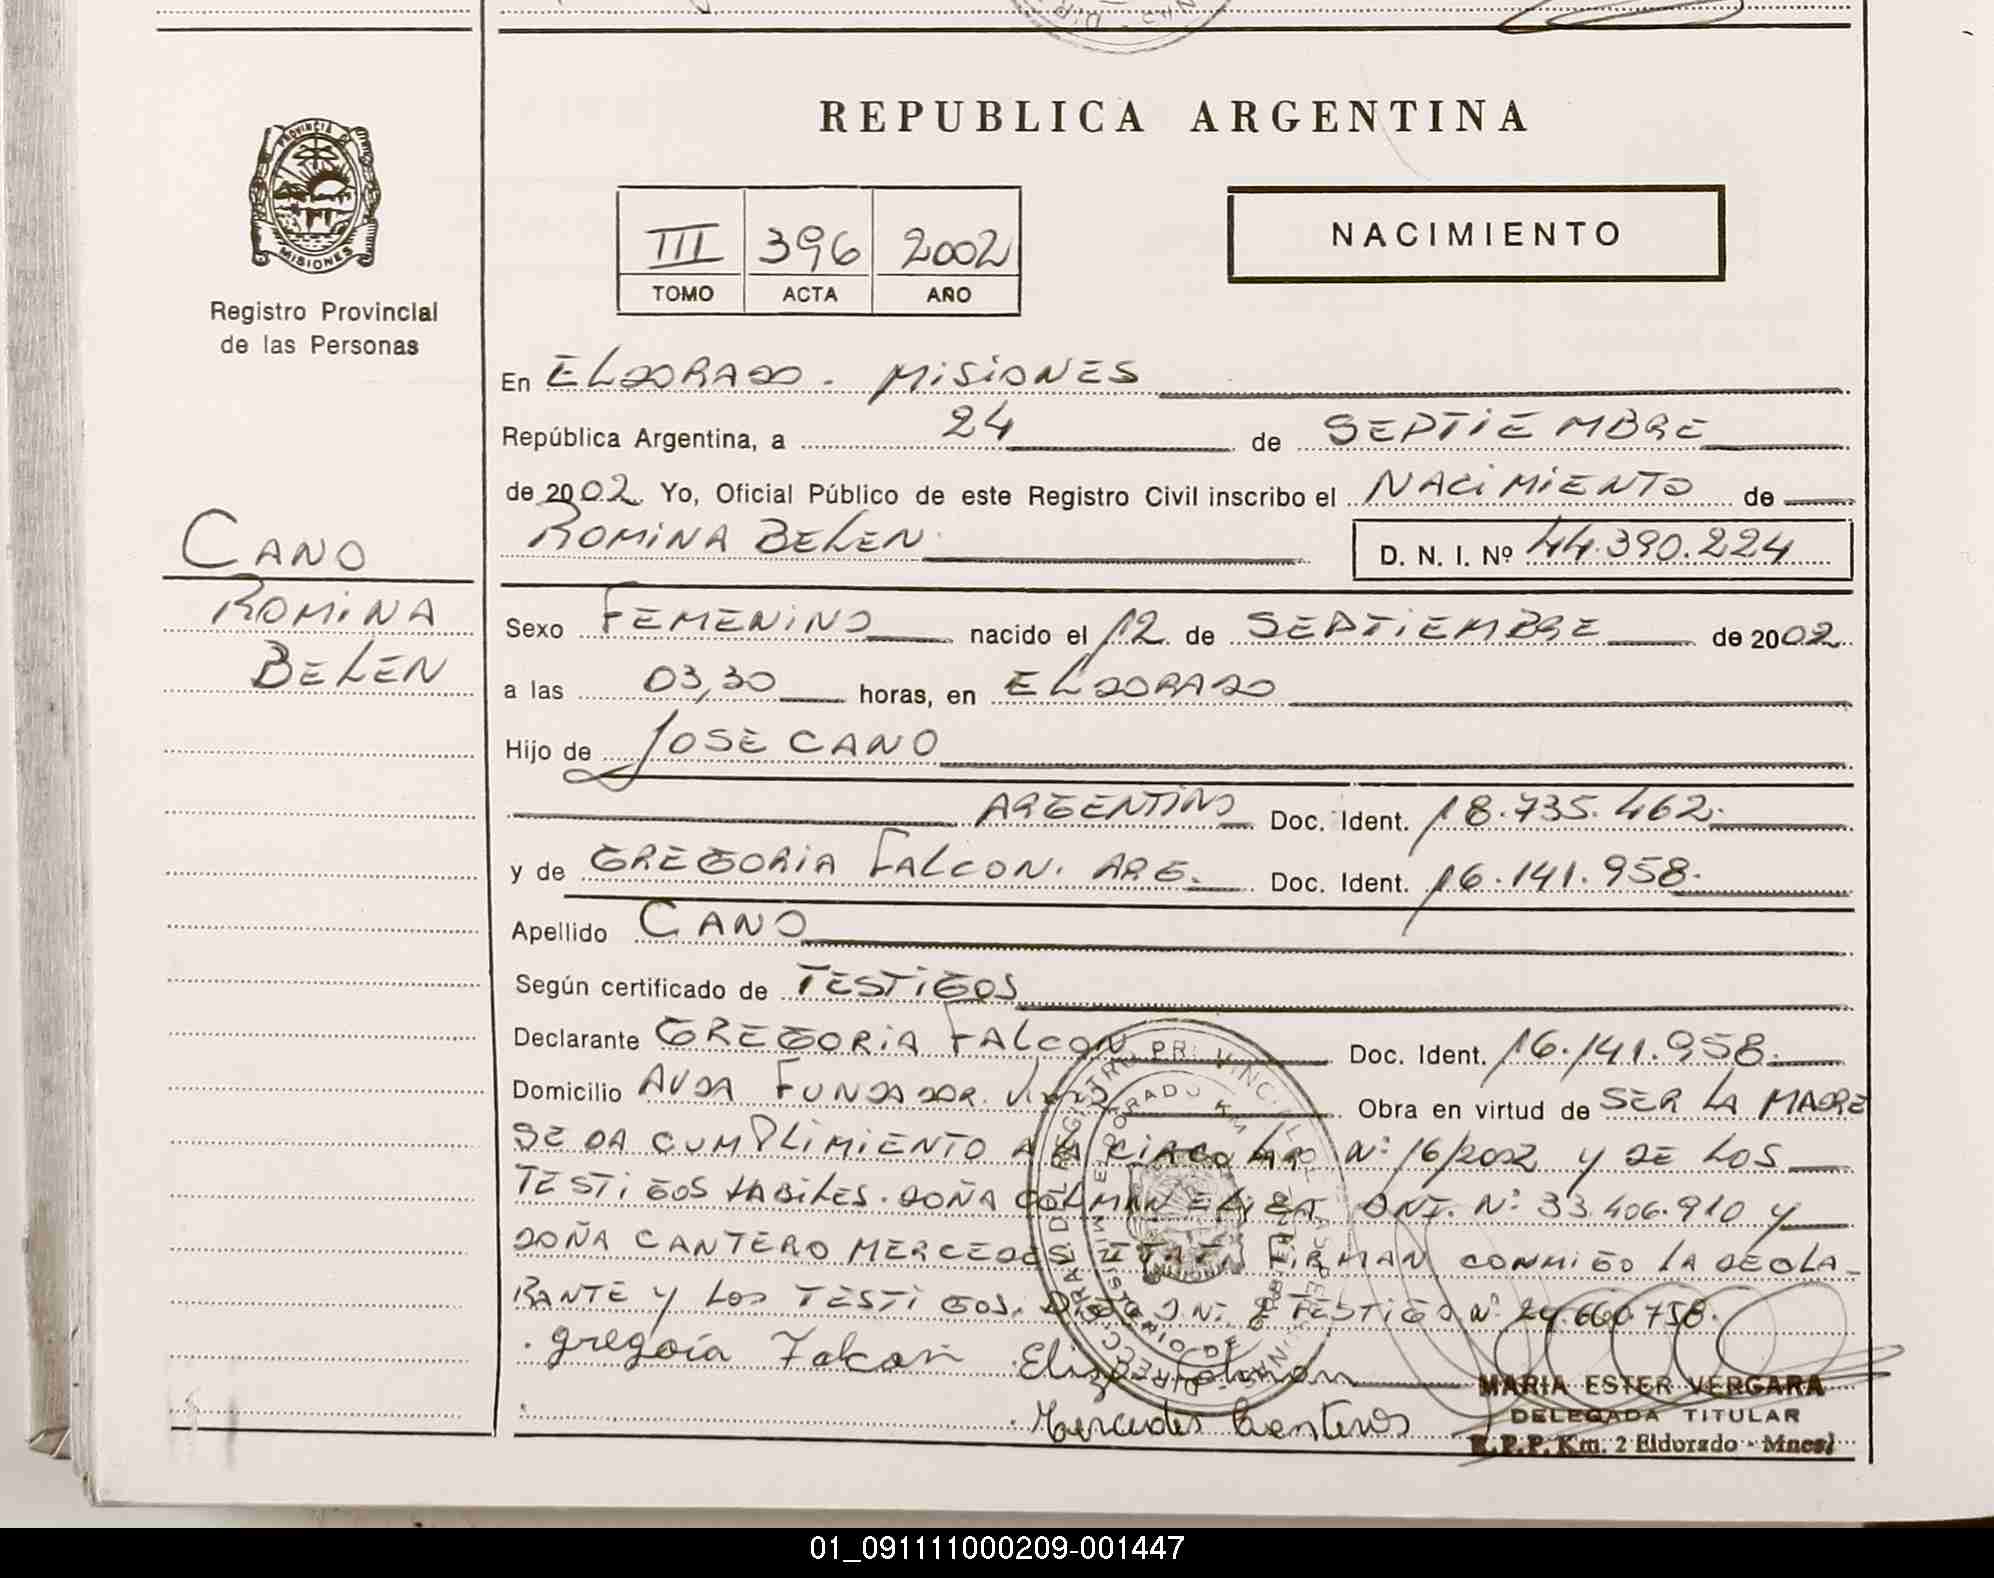 PROVINCIA DE
MISIONES
Registro Provincial
de las Personas
CANO
ROMINA
BELEN
REPUBLICA ARGENTINA
III 396 2002
TOMO ACTA AÑO
NACIMIENTO
En ELDORADO. MISIONES
República Argentina, a 24 de SEPTIEMBRE
de 2002 Yo, Oficial Público de este Registro Civil inscribo el NACIMIENTO de
ROMINA BELEN D. N. I. Nº 44.390.224
Sexo FEMENINO nacido el 12 de SEPTIEMBRE de 2002
a las 03,30 horas, en ELDORADO
Hijo de JOSE CANO
ARGENTINO Doc. Ident. 18.735.462.
y de GREGORIA FALCON. ARG. Doc. Ident. 16.141.958.
Apellido CANO
Según certificado de TESTIGOS
Declarante GREGORIA FALCON Doc. Ident. 16.141.958.
Domicilio AVDA FUNDADOR. Obra en virtud de SER LA MADRE
SE DA CUMPLIMIENTO A LA CIRCULAR Nº 16/2002 Y DE LOS
TESTIGOS HABILES. DOÑA COLMAN ELISA DNI. Nº 33.406.910 Y
DOÑA CANTERO MERCEDES FIRMAN CONMIGO LA DECLA-
RANTE Y LOS TESTIGOS. TESTIGO Nº 24.660.758.
gregoria Falcon Elisa Colman
Mercedes Canteros
MARIA ESTER VERGARA
DELEGADA TITULAR
R.P.P. Km. 2 Eldorado - Mnes
01_091111000209-001447